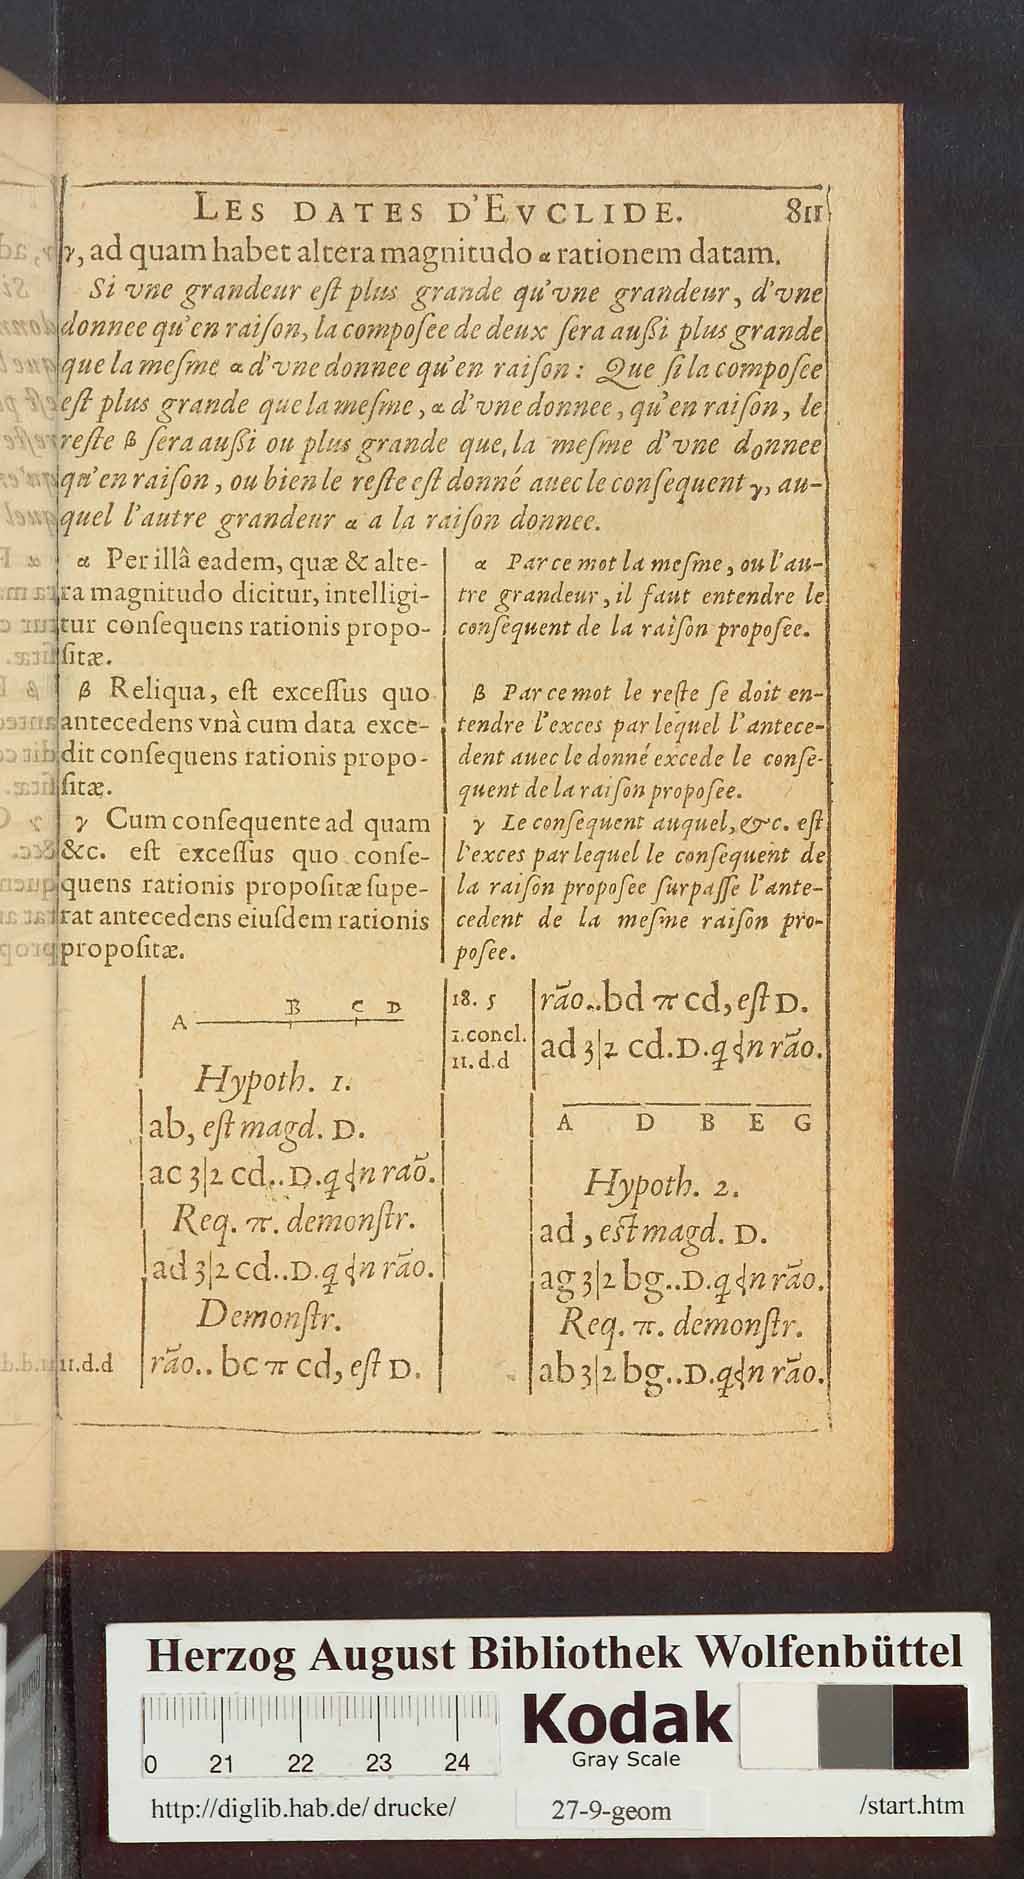 LES DATES D'EVCLIDE. 811
γ, ad quam habet altera magnitudo α rationem datam.
Si vne grandeur eſt plus grande qu'vne grandeur, d'vne
donnee qu'en raiſon, la compoſee de deux ſera auſſi plus grande
que la meſme α d'vne donnee qu'en raiſon: Que ſi la compoſee
eſt plus grande que la meſme, α d'vne donnee, qu'en raiſon, le
reſte β ſera auſſi ou plus grande que, la meſme d'vne donnee
qu'en raiſon, ou bien le reſte eſt donné auec le conſequent γ, au-
quel l'autre grandeur α a la raiſon donnee.
α Per illâ eadem, quæ & alte-
ra magnitudo dicitur, intelligi-
tur conſequens rationis propo-
ſitæ.
β Reliqua, eſt exceſſus quo
antecedens vnà cum data exce-
dit conſequens rationis propo-
ſitæ.
γ Cum conſequente ad quam
&c. eſt exceſſus quo conſe-
quens rationis propoſitæ ſupe-
rat antecedens eiuſdem rationis
propoſitæ.
α Par ce mot la meſme, ou l'au-
tre grandeur, il faut entendre le
conſequent de la raiſon propoſee.
β Par ce mot le reſte ſe doit en-
tendre l'exces par lequel l'antece-
dent auec le donné excede le conſe-
quent de la raiſon propoſee.
γ Le conſequent auquel, &c. eſt
l'exces par lequel le conſequent de
la raiſon propoſee ſurpaſſe l'ante-
cedent de la meſme raiſon pro-
poſee.
A B C D
Hypoth. 1.
ab, eſt magd. D.
ac 3|2 cd..D.q̨ ⟨n rão.
Req. π. demonſtr.
ad 3|2 cd..D.q̨ ⟨n rão.
Demonſtr.
11.d.d rão.. bc π cd, eſt D.
18. 5 rão..bd π cd, eſt D.
1.concl.
11.d.d ad 3|2 cd.D.q̨ ⟨n rão.
A D B E G
Hypoth. 2.
ad, eſt magd. D.
ag 3|2 bg..D.q̨ ⟨n rão.
Req. π. demonſtr.
ab 3|2 bg..D.q̨ ⟨n rão.
Herzog August Bibliothek Wolfenbüttel
0 21 22 23 24
Kodak
Gray Scale
http://diglib.hab.de/drucke/ 27-9-geom /start.htm